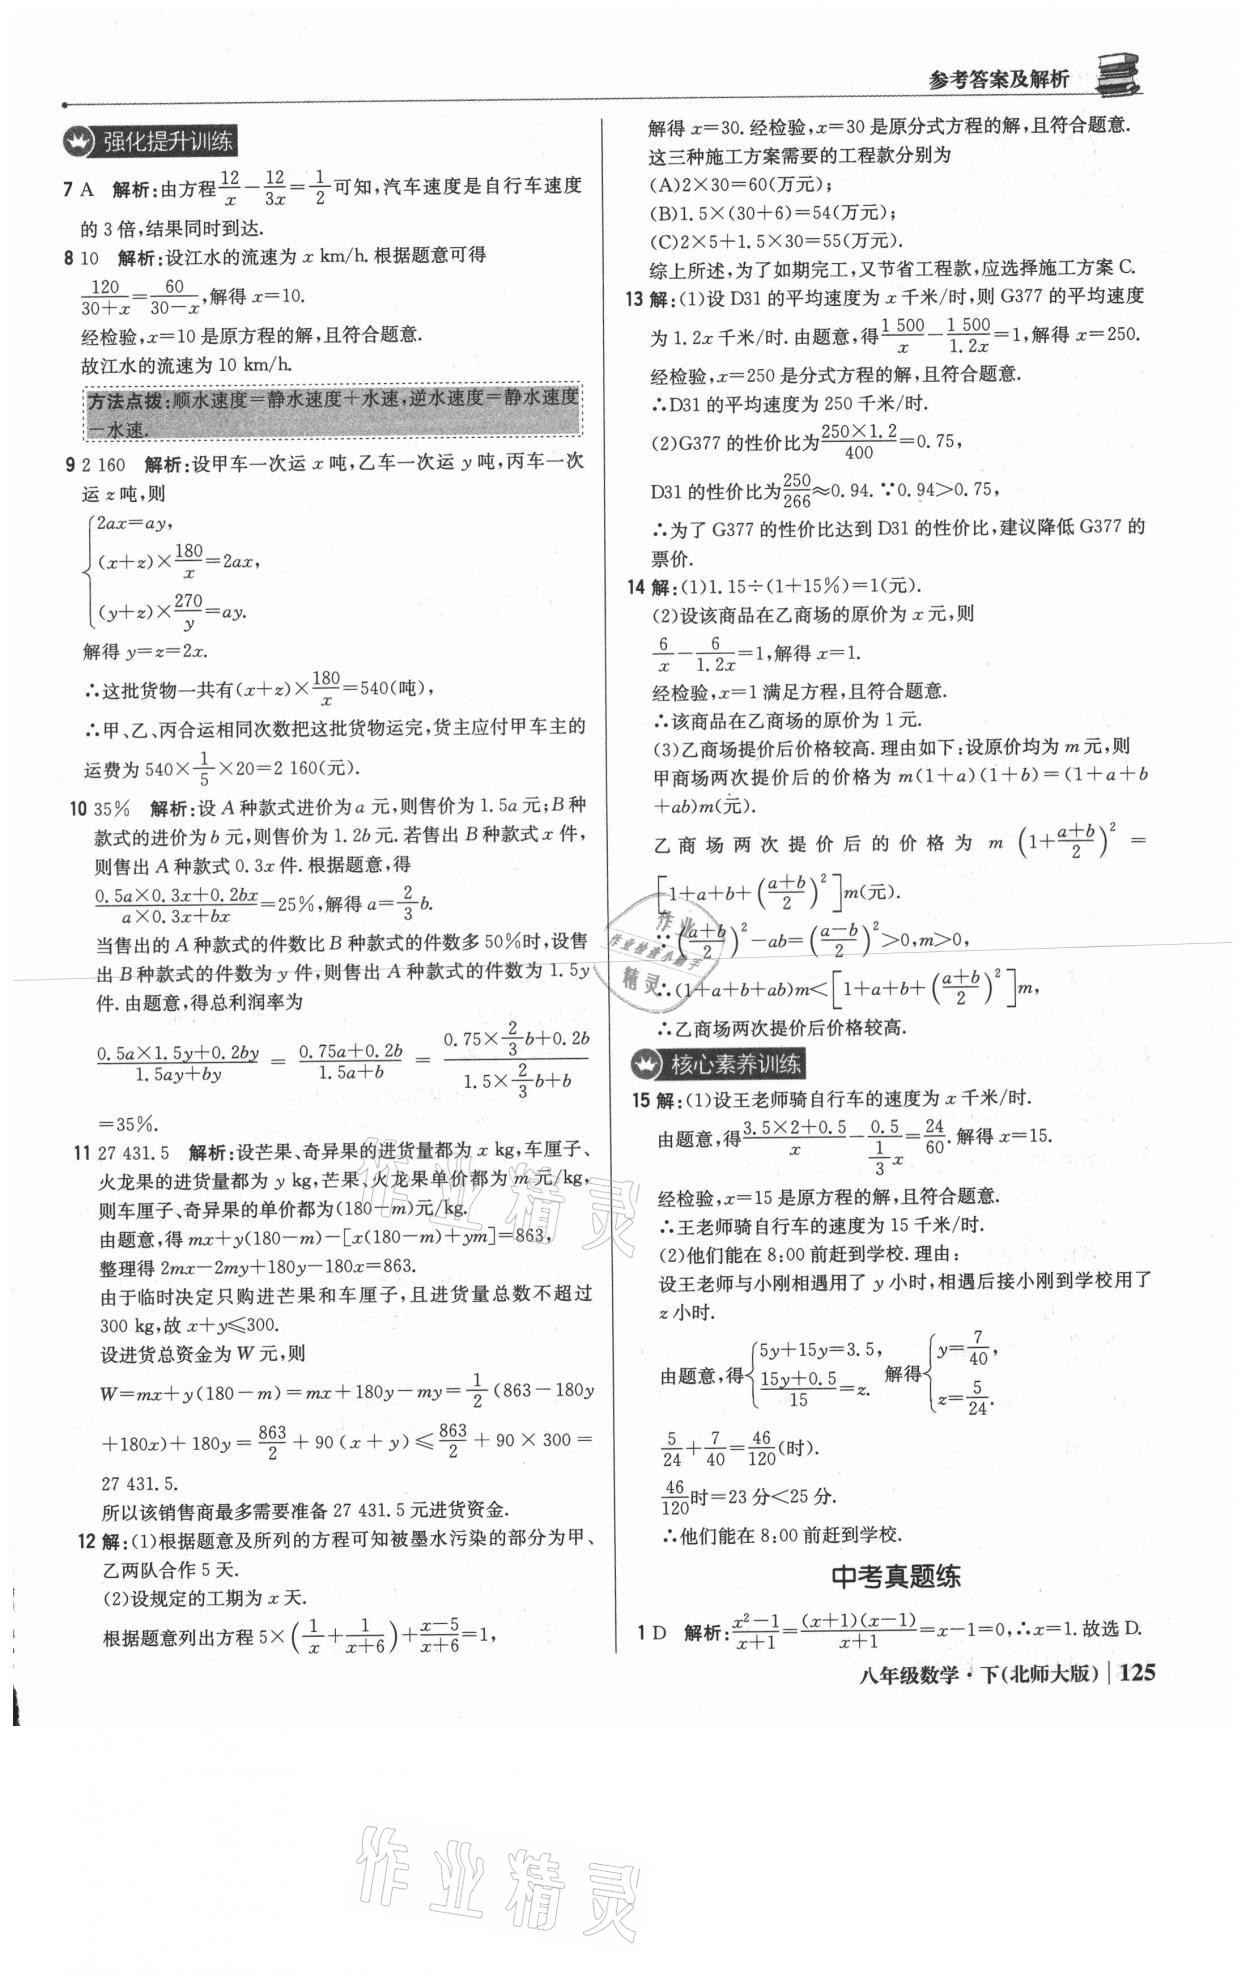 参考答案及解析
强化提升训练
7 A 解析:由方程12/x-12/3x=1/2可知,汽车速度是自行车速度
的3倍,结果同时到达.
8 10 解析:设江水的流速为x km/h.根据题意可得
120/(30+x)=60/(30-x),解得x=10.
经检验,x=10是原方程的解,且符合题意.
故江水的流速为10 km/h.
方法点拨:顺水速度=静水速度+水速,逆水速度=静水速度
-水速.
9 2 160 解析:设甲车一次运x吨,乙车一次运y吨,丙车一次
运z吨,则
{2ax=ay,
(x+z)×180/x=2ax,
(y+z)×270/y=ay.
解得y=z=2x.
∴这批货物一共有(x+z)×180/x=540(吨),
∴甲、乙、丙合运相同次数把这批货物运完,货主应付甲车主的
运费为540×1/5×20=2 160(元).
10 35% 解析:设A种款式进价为a元,则售价为1.5a元;B种
款式的进价为b元,则售价为1.2b元.若售出B种款式x件,
则售出A种款式0.3x件.根据题意,得
(0.5a×0.3x+0.2bx)/(a×0.3x+bx)=25%,解得a=2/3b.
当售出的A种款式的件数比B种款式的件数多50%时,设售
出B种款式的件数为y件,则售出A种款式的件数为1.5y
件.由题意,得总利润率为
(0.5a×1.5y+0.2by)/(1.5ay+by)=(0.75a+0.2b)/(1.5a+b)=(0.75×2/3b+0.2b)/(1.5×2/3b+b)
=35%.
11 27 431.5 解析:设芒果、奇异果的进货量都为x kg,车厘子、
火龙果的进货量都为y kg,芒果、火龙果单价都为m元/kg,
则车厘子、奇异果的单价都为(180-m)元/kg.
由题意,得mx+y(180-m)-[x(180-m)+ym]=863,
整理得2mx-2my+180y-180x=863.
由于临时决定只购进芒果和车厘子,且进货量总数不超过
300 kg,故x+y≤300.
设进货总资金为W元,则
W=mx+y(180-m)=mx+180y-my=1/2(863-180y
+180x)+180y=863/2+90(x+y)≤863/2+90×300=
27 431.5.
所以该销售商最多需要准备27 431.5元进货资金.
12 解:(1)根据题意及所列的方程可知被墨水污染的部分为甲、
乙两队合作5天.
(2)设规定的工期为x天.
根据题意列出方程5×(1/x+1/(x+6))+(x-5)/(x+6)=1,
解得x=30.经检验,x=30是原分式方程的解,且符合题意.
这三种施工方案需要的工程款分别为
(A)2×30=60(万元);
(B)1.5×(30+6)=54(万元);
(C)2×5+1.5×30=55(万元).
综上所述,为了如期完工,又节省工程款,应选择施工方案C.
13 解:(1)设D31的平均速度为x千米/时,则G377的平均速度
为1.2x千米/时.由题意,得1 500/x-1 500/1.2x=1,解得x=250.
经检验,x=250是分式方程的解,且符合题意.
∴D31的平均速度为250千米/时.
(2)G377的性价比为250×1.2/400=0.75,
D31的性价比为250/266≈0.94.∵0.94>0.75,
∴为了G377的性价比达到D31的性价比,建议降低G377的
票价.
14 解:(1)1.15÷(1+15%)=1(元).
(2)设该商品在乙商场的原价为x元,则
6/x-6/1.2x=1,解得x=1.
经检验,x=1满足方程,且符合题意.
∴该商品在乙商场的原价为1元.
(3)乙商场提价后价格较高.理由如下:设原价均为m元,则
甲商场两次提价后的价格为m(1+a)(1+b)=(1+a+b
+ab)m(元).
乙商场两次提价后的价格为m(1+(a+b)/2)²=
[1+a+b+((a+b)/2)²]m(元).
∵((a+b)/2)²-ab=((a-b)/2)²>0,m>0,
∴(1+a+b+ab)m<[1+a+b+((a+b)/2)²]m,
∴乙商场两次提价后价格较高.
核心素养训练
15 解:(1)设王老师骑自行车的速度为x千米/时.
由题意,得(3.5×2+0.5)/x-0.5/(1/3x)=24/60.解得x=15.
经检验,x=15是原方程的解,且符合题意.
∴王老师骑自行车的速度为15千米/时.
(2)他们能在8:00前赶到学校.理由:
设王老师与小刚相遇用了y小时,相遇后接小刚到学校用了
z小时.
由题意,得{5y+15y=3.5,(15y+0.5)/15=z. 解得{y=7/40,z=5/24.
5/24+7/40=46/120(时).
46/120时=23分<25分.
∴他们能在8:00前赶到学校.
中考真题练
1 D 解析:(x²-1)/(x+1)=(x+1)(x-1)/(x+1)=x-1=0,∴x=1.故选D.
八年级数学·下(北师大版) | 125
作业
作业检查小助手
精灵
作业精灵
作业精灵